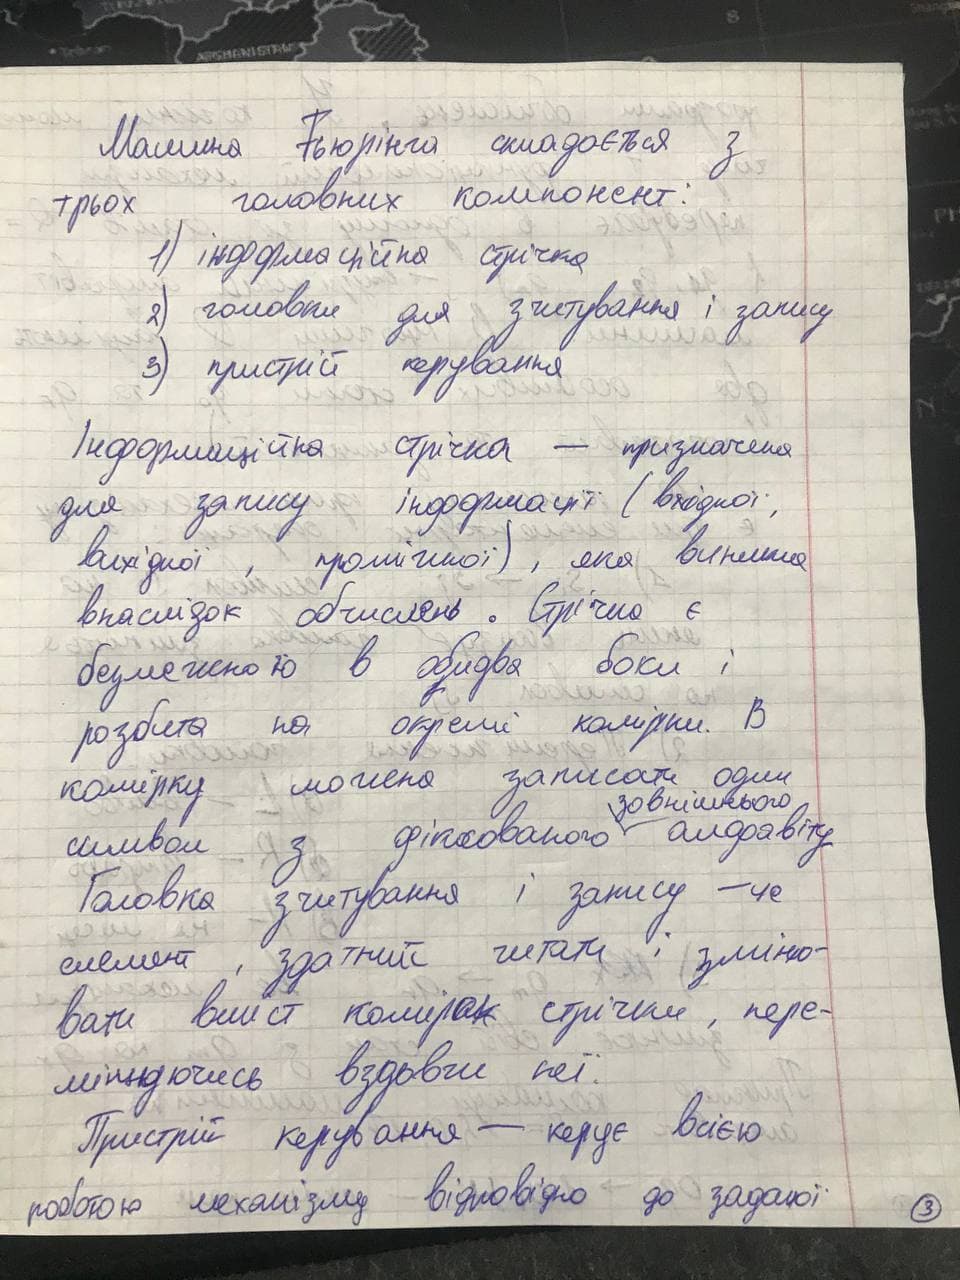 Машина Тьюрінга складається з
трьох головних компонент:
1) інформаційна стрічка
2) головки для зчитування і запису
3) пристрій керування
Інформаційна стрічка — призначена
для запису інформації (вхідної,
вихідної, проміжної), яка виникла
внаслідок обчислень. Стрічка є
безмежною в обидва боки і
розбита на окремі комірки. В
комірку можна записати один
символ з фіксованого зовнішнього алфавіту
Головка зчитування і запису — це
елемент, здатний читати і зміню-
вати вміст комірок стрічки, пере-
міщуючись вздовж неї.
Пристрій керування — керує всією
роботою механізму відповідно до заданої
3